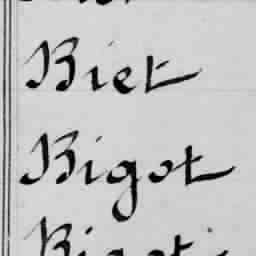 Biet
Bigot